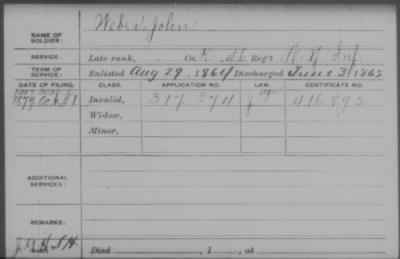 NAME OF SOLDIER: Weber, John
SERVICE: Late rank, Co. K, 46 Reg't N Y Inf.
TERM OF SERVICE: Enlisted Aug 29, 1864 Discharged June 3, 1865
DATE OF FILING. CLASS. APPLICATION NO. LAW. CERTIFICATE NO.
1879 Oct 21 Invalid, 317 274 416.895
Widow,
Minor,
ADDITIONAL SERVICES:
REMARKS:
Died , 1 , at